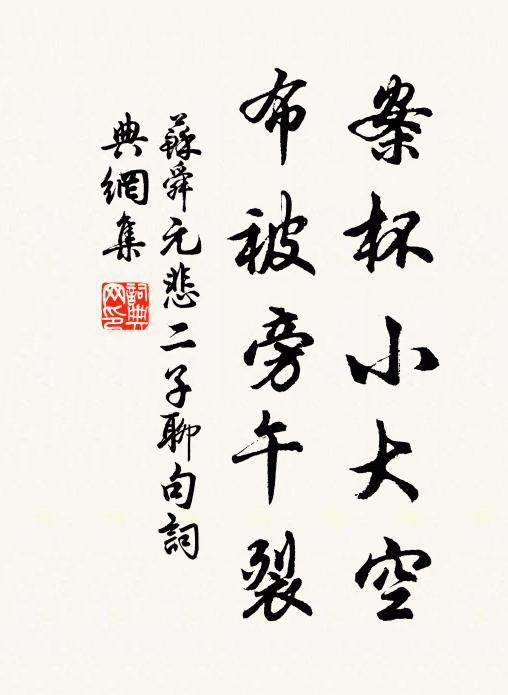 案杯小大空
布被旁午裂
蘇舜元悲二子聊句詞
典網集
詞典网印